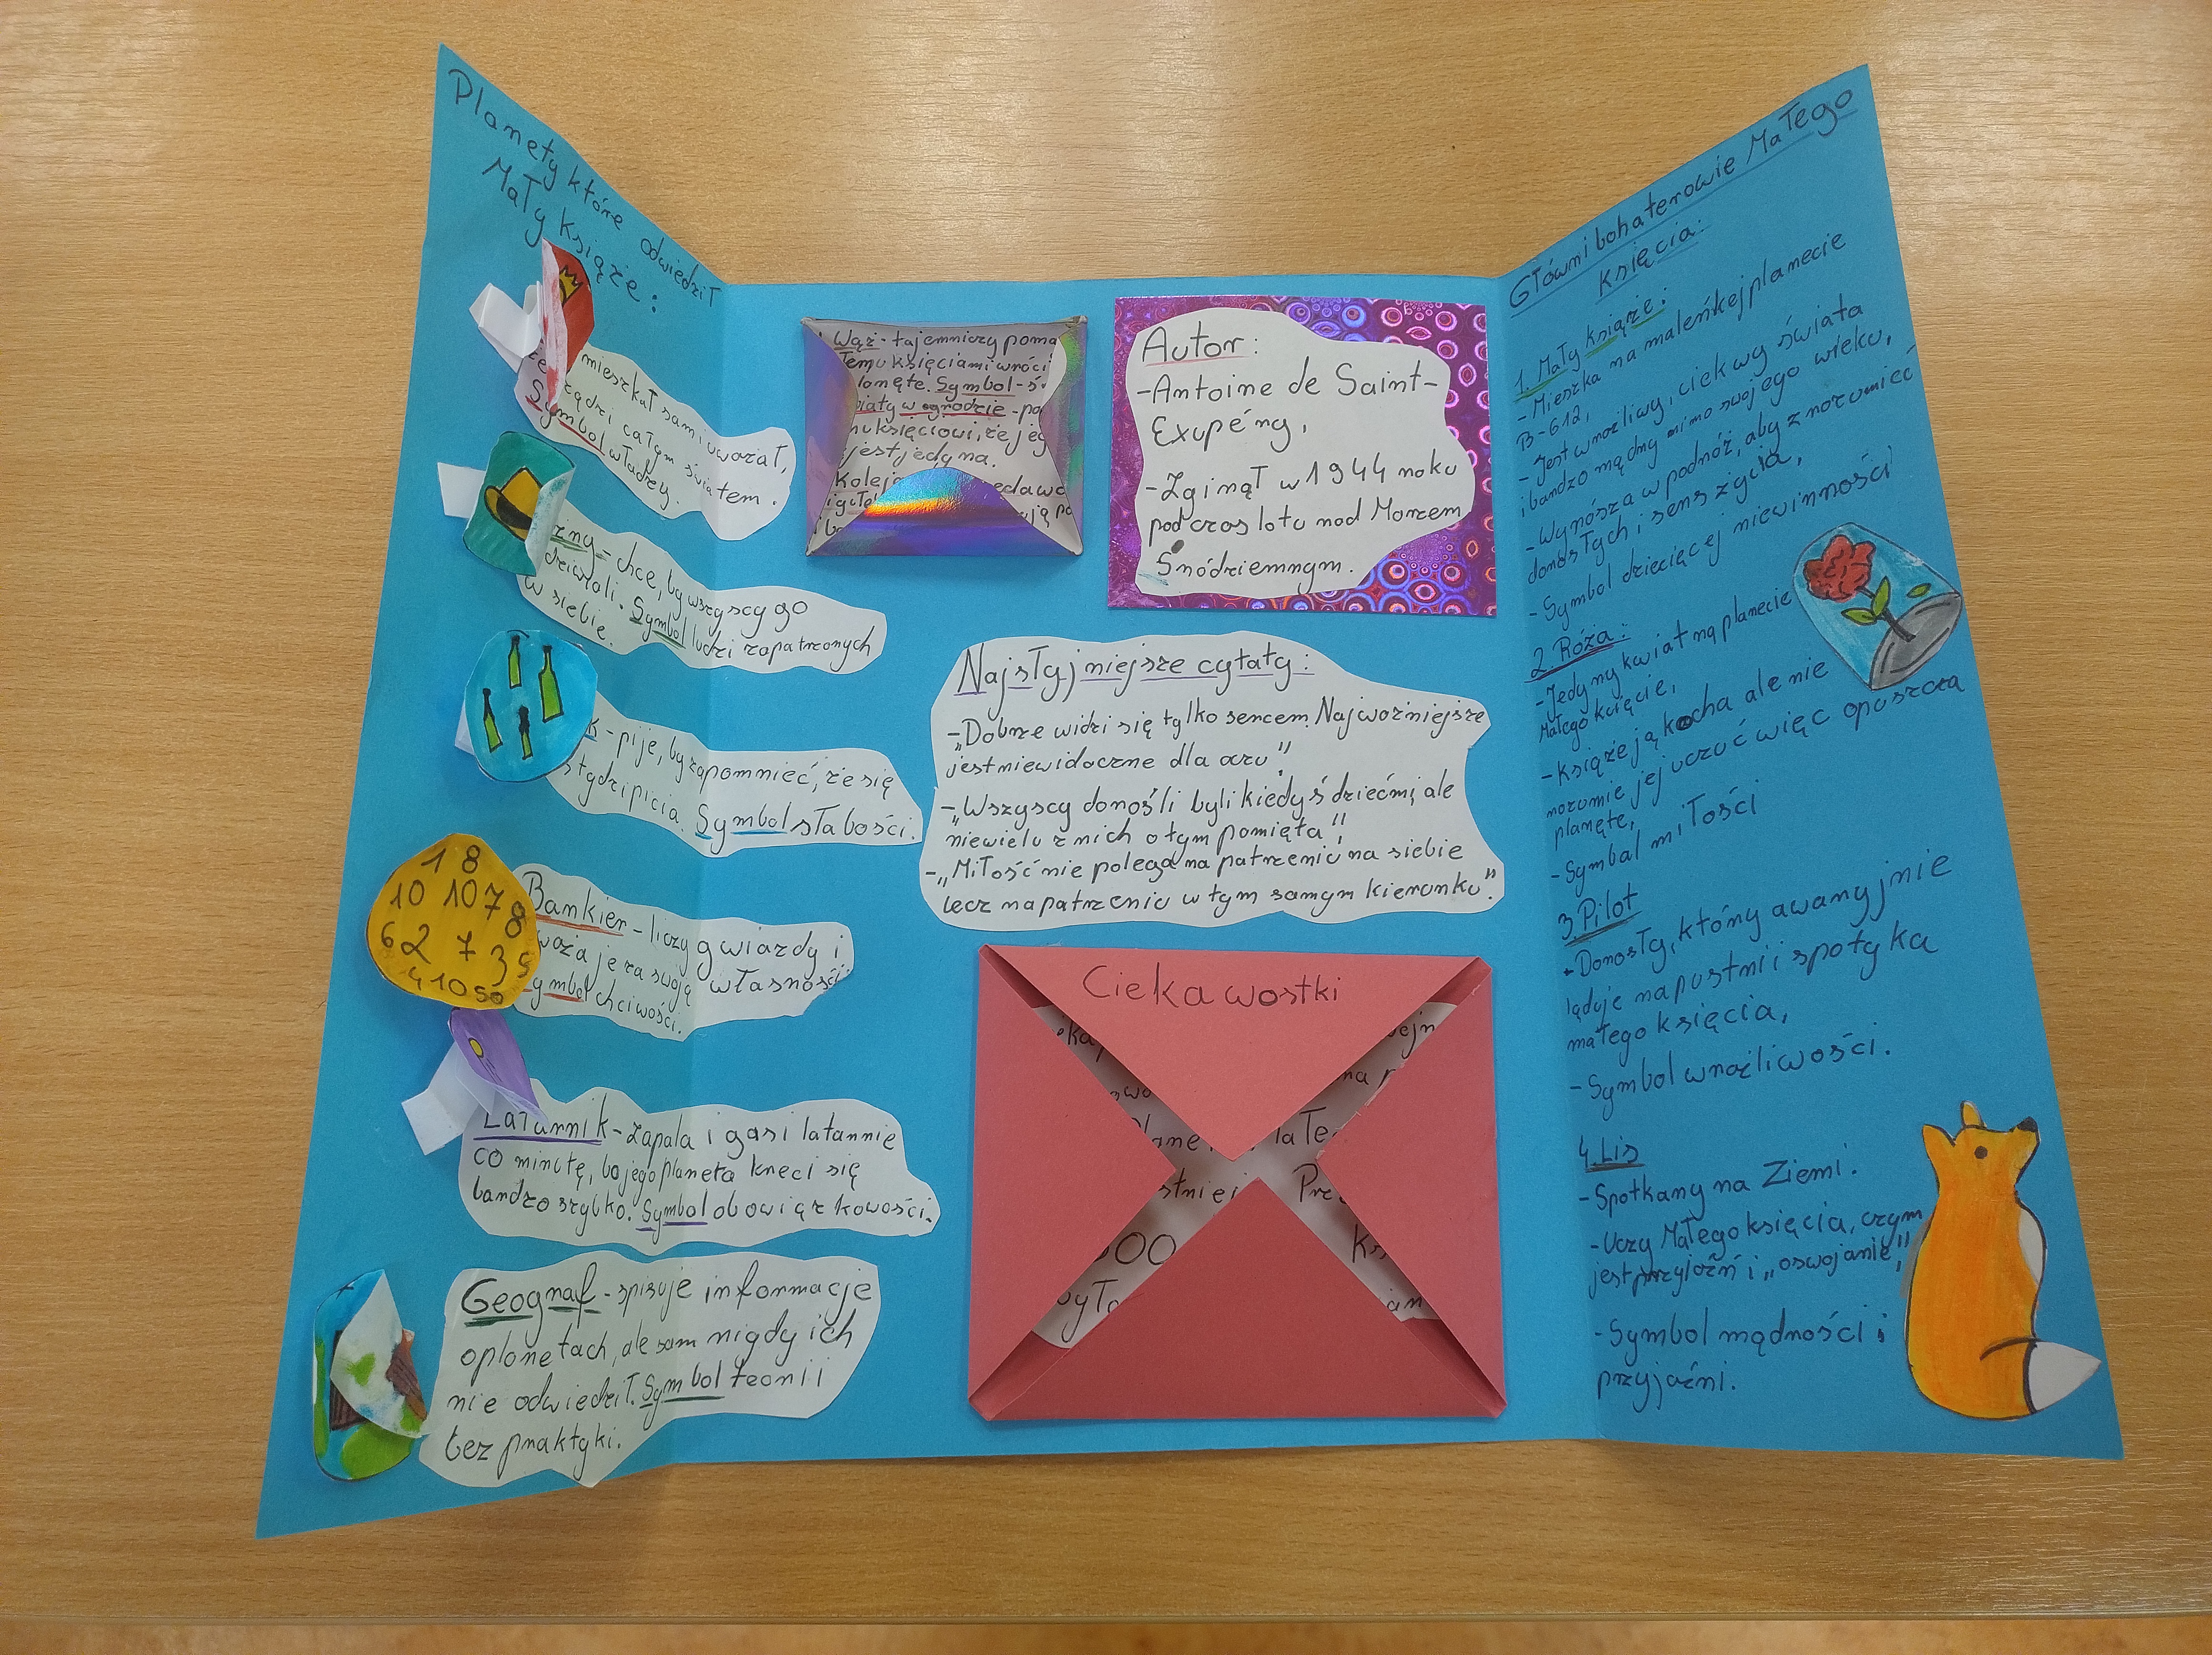 Planety które odwiedził
Mały książę:
mieszkał sam i uważał,
że rządzi całym światem.
Symbol władzy.
żny = chce, by wszyscy go
dziwiali. Symbol ludzi zapatrzonych
w siebie.
k - pije, by zapomnieć, że się
stydzi picia. Symbol słabości.
1 8
10 10 7 8
6 2 7 3 5
4 10 50
Bankier - liczy gwiazdy i
waża je za swoją własność.
Symbol chciwości.
Latarnik - Zapala i gasi latarnie
co minutę, bo jego planeta kręci się
bardzo szybko. Symbol obowiązkowości.
Geograf - spisuje informacje
o planetach, ale sam nigdy ich
nie odwiedził. Symbol teorii
bez praktyki.
Wąż - tajemniczy poma
łemu księciami wróci
lanetę. Symbol - ś
wiaty w ogrodzie - po
mu księciowi, że jeg
jest jedyna.
Kolej edawc
Autor:
- Antoine de Saint-
Exupéry,
- Zginął w 1944 roku
podczas lotu nad Morzem
Śródziemnym.
Najsłyjniejsze cytaty:
- „Dobrze widzi się tylko sercem. Najważniejsze
jest niewidoczne dla oczu”,
- „Wszyscy dorośli byli kiedyś dziećmi, ale
niewielu z nich o tym pamięta”,
- „Miłość nie polega na patrzeniu na siebie
lecz na patrzeniu w tym samym kierunku”.
Ciekawostki
Główni bohaterowie Małego
Księcia:
1. Mały książę:
- Mieszka na maleńkiej planecie
B-612,
- Jest wrażliwy, ciekwy świata
i bardzo mądry mimo swojego wieku,
- Wyrósza w podróż, aby zrozumieć
dorosłych i sens życia,
- Symbol dziecięcej niewinności
2. Róża:
- Jedyny kwiat na planecie
Małego księcie,
- Książę ją kocha ale nie
rozumie jej uczuć więc opuszcza
planętę,
- Symbal miłości
3. Pilot
- Dorosły, który awaryjnie
ląduje na pustnii spotyka
małego księcia,
- Symbol wrażliwości.
4. Lis
- Spotkany na Ziemi.
- Uczy Małego księcia, czym
jest przyjaźń i „oswojanie”,
- Symbol mądrości i
przyjaźni.